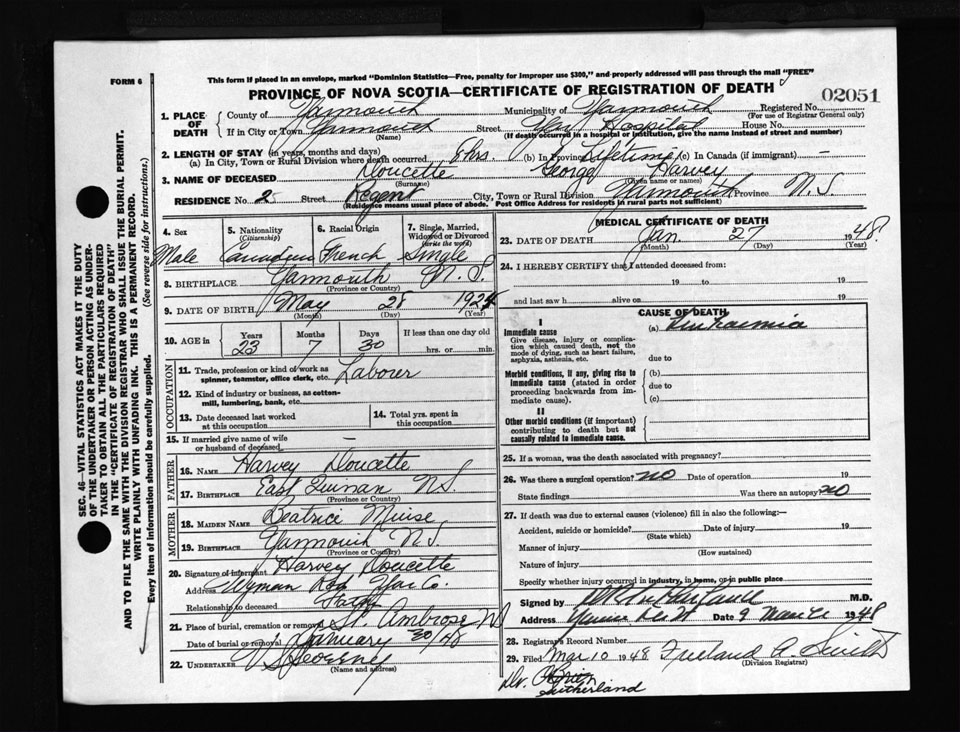 FORM 6
This form if placed in an envelope, marked "Dominion Statistics—Free, penalty for improper use $300," and properly addressed will pass through the mail "FREE"
PROVINCE OF NOVA SCOTIA—CERTIFICATE OF REGISTRATION OF DEATH
02051
1. PLACE OF DEATH
County of Yarmouth Municipality of Yarmouth Registered No.
(For use of Registrar General only)
If in City or Town Yarmouth Street Yar Hospital House No.
(Name) (If death occurred in a hospital or institution, give the name instead of street and number)
2. LENGTH OF STAY (in years, months and days)
(a) In City, Town or Rural Division where death occurred 8 hrs. (b) In Province Lifetime (c) In Canada (if immigrant) —
3. NAME OF DECEASED Doucette George Harvey
(Surname) (Given name or names)
RESIDENCE No. 2 Street Regent City, Town or Rural Division Yarmouth Province N.S.
(Residence means usual place of abode. Post Office Address for residents in rural parts not sufficient)
4. Sex 5. Nationality 6. Racial Origin 7. Single, Married, Widowed or Divorced
(Citizenship) (write the word)
Male Canadian French Single
8. BIRTHPLACE Yarmouth N.S.
(Province or Country)
9. DATE OF BIRTH May 28 1924
(Month) (Day) (Year)
10. AGE in Years Months Days If less than one day old
23 7 30 hrs. or min.
OCCUPATION
11. Trade, profession or kind of work as spinner, teamster, office clerk, etc. Laborer
12. Kind of industry or business, as cotton-mill, lumbering, bank, etc.
13. Date deceased last worked at this occupation
14. Total yrs. spent in this occupation
15. If married give name of wife or husband of deceased —
FATHER
16. NAME Harvey Doucette
17. BIRTHPLACE East Quinan NS.
MOTHER
18. MAIDEN NAME Beatrice Muise
19. BIRTHPLACE Yarmouth N.S.
(Province or Country)
20. Signature of informant Harvey Doucette
Address Wyman Rd Yar Co.
Relationship to deceased Father
21. Place of burial, cremation or removal St. Ambrose
Date of burial or removal January 30/48
22. UNDERTAKER V S Sweeney
(Name and address)
MEDICAL CERTIFICATE OF DEATH
23. DATE OF DEATH Jan. 27 1948
(Month) (Day) (Year)
24. I HEREBY CERTIFY that I attended deceased from:
19 to 19
and last saw h alive on 19
CAUSE OF DEATH
I
Immediate cause (a) Leukaemia
Give disease, injury or complication which caused death, not the mode of dying, such as heart failure, asphyxia, asthenia, etc.
due to
Morbid conditions, if any, giving rise to immediate cause (stated in order proceeding backwards from immediate cause).
(b)
due to
(c)
II
Other morbid conditions (if important) contributing to death but not causally related to immediate cause.
25. If a woman, was the death associated with pregnancy?
26. Was there a surgical operation? no Date of operation 19
State findings Was there an autopsy? no
27. If death was due to external causes (violence) fill in also the following:—
Accident, suicide or homicide? Date of injury 19
(State which)
Manner of injury
(How sustained)
Nature of injury
Specify whether injury occurred in industry, in home, or in public place
Signed by M.D.
Address Date 9 March 1948
28. Registrar's Record Number
29. Filed Mar 10 1948 Freeland A. Smith
(Division Registrar)
Dr. Sutherland
SEC. 46—VITAL STATISTICS ACT MAKES IT THE DUTY
OF THE UNDERTAKER OR PERSON ACTING AS UNDER-
TAKER TO OBTAIN ALL THE PARTICULARS REQUIRED
IN THE "CERTIFICATE OF REGISTRATION OF DEATH"
AND TO FILE THE SAME WITH THE DIVISION REGISTRAR WHO SHALL ISSUE THE BURIAL PERMIT.
WRITE PLAINLY WITH UNFADING INK. THIS IS A PERMANENT RECORD.
Every item of information should be carefully supplied. (See reverse side for instructions.)